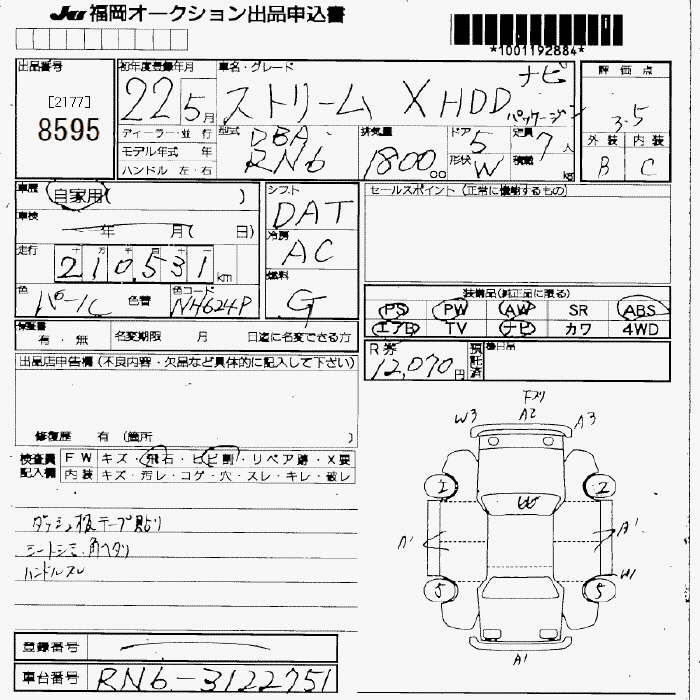 JU 福岡オークション出品申込書
*1001192884*
出品番号
[2177]
8595
初年度登録年月
22 5月
車名・グレード
ナビ
ストリーム X HDD パッケージ
評価点
3.5
外装 内装
B C
ディーラー・並行
モデル年式 年
ハンドル 左・右
型式
DBA-
RN6
排気量
1800 cc
ドア
5
形状 W
定員
7人
積載
kg
車歴
自家用( )
車検
年 月( 日)
走行
十 万 千 百 十 一
210,531 km
色
パール
色替
色コード
NH624P
シフト
DAT
冷房
AC
燃料
G
セールスポイント (正常に機能するもの)
装備品(純正品に限る)
PS PW AW SR ABS
エアB TV ナビ カワ 4WD
保証書
有・無
名変期限 月 日迄に名変できる方
R券
12,070円
預託済
出品店申告欄(不良内容・欠品など具体的に記入して下さい)
修復歴 有 (箇所 )
検査員記入欄
FW キズ・飛石・ヒビ割・リペア跡・X要
内装 キズ・汚レ・コゲ・穴・スレ・キレ・破レ
ダッシュ板テープ貼り
シートシミ・角ヘタリ
ハンドルスレ
W3 A2 A3
2 W 2
A' A'
5 5 W1
A1
登録番号
車台番号 RN6-3122751